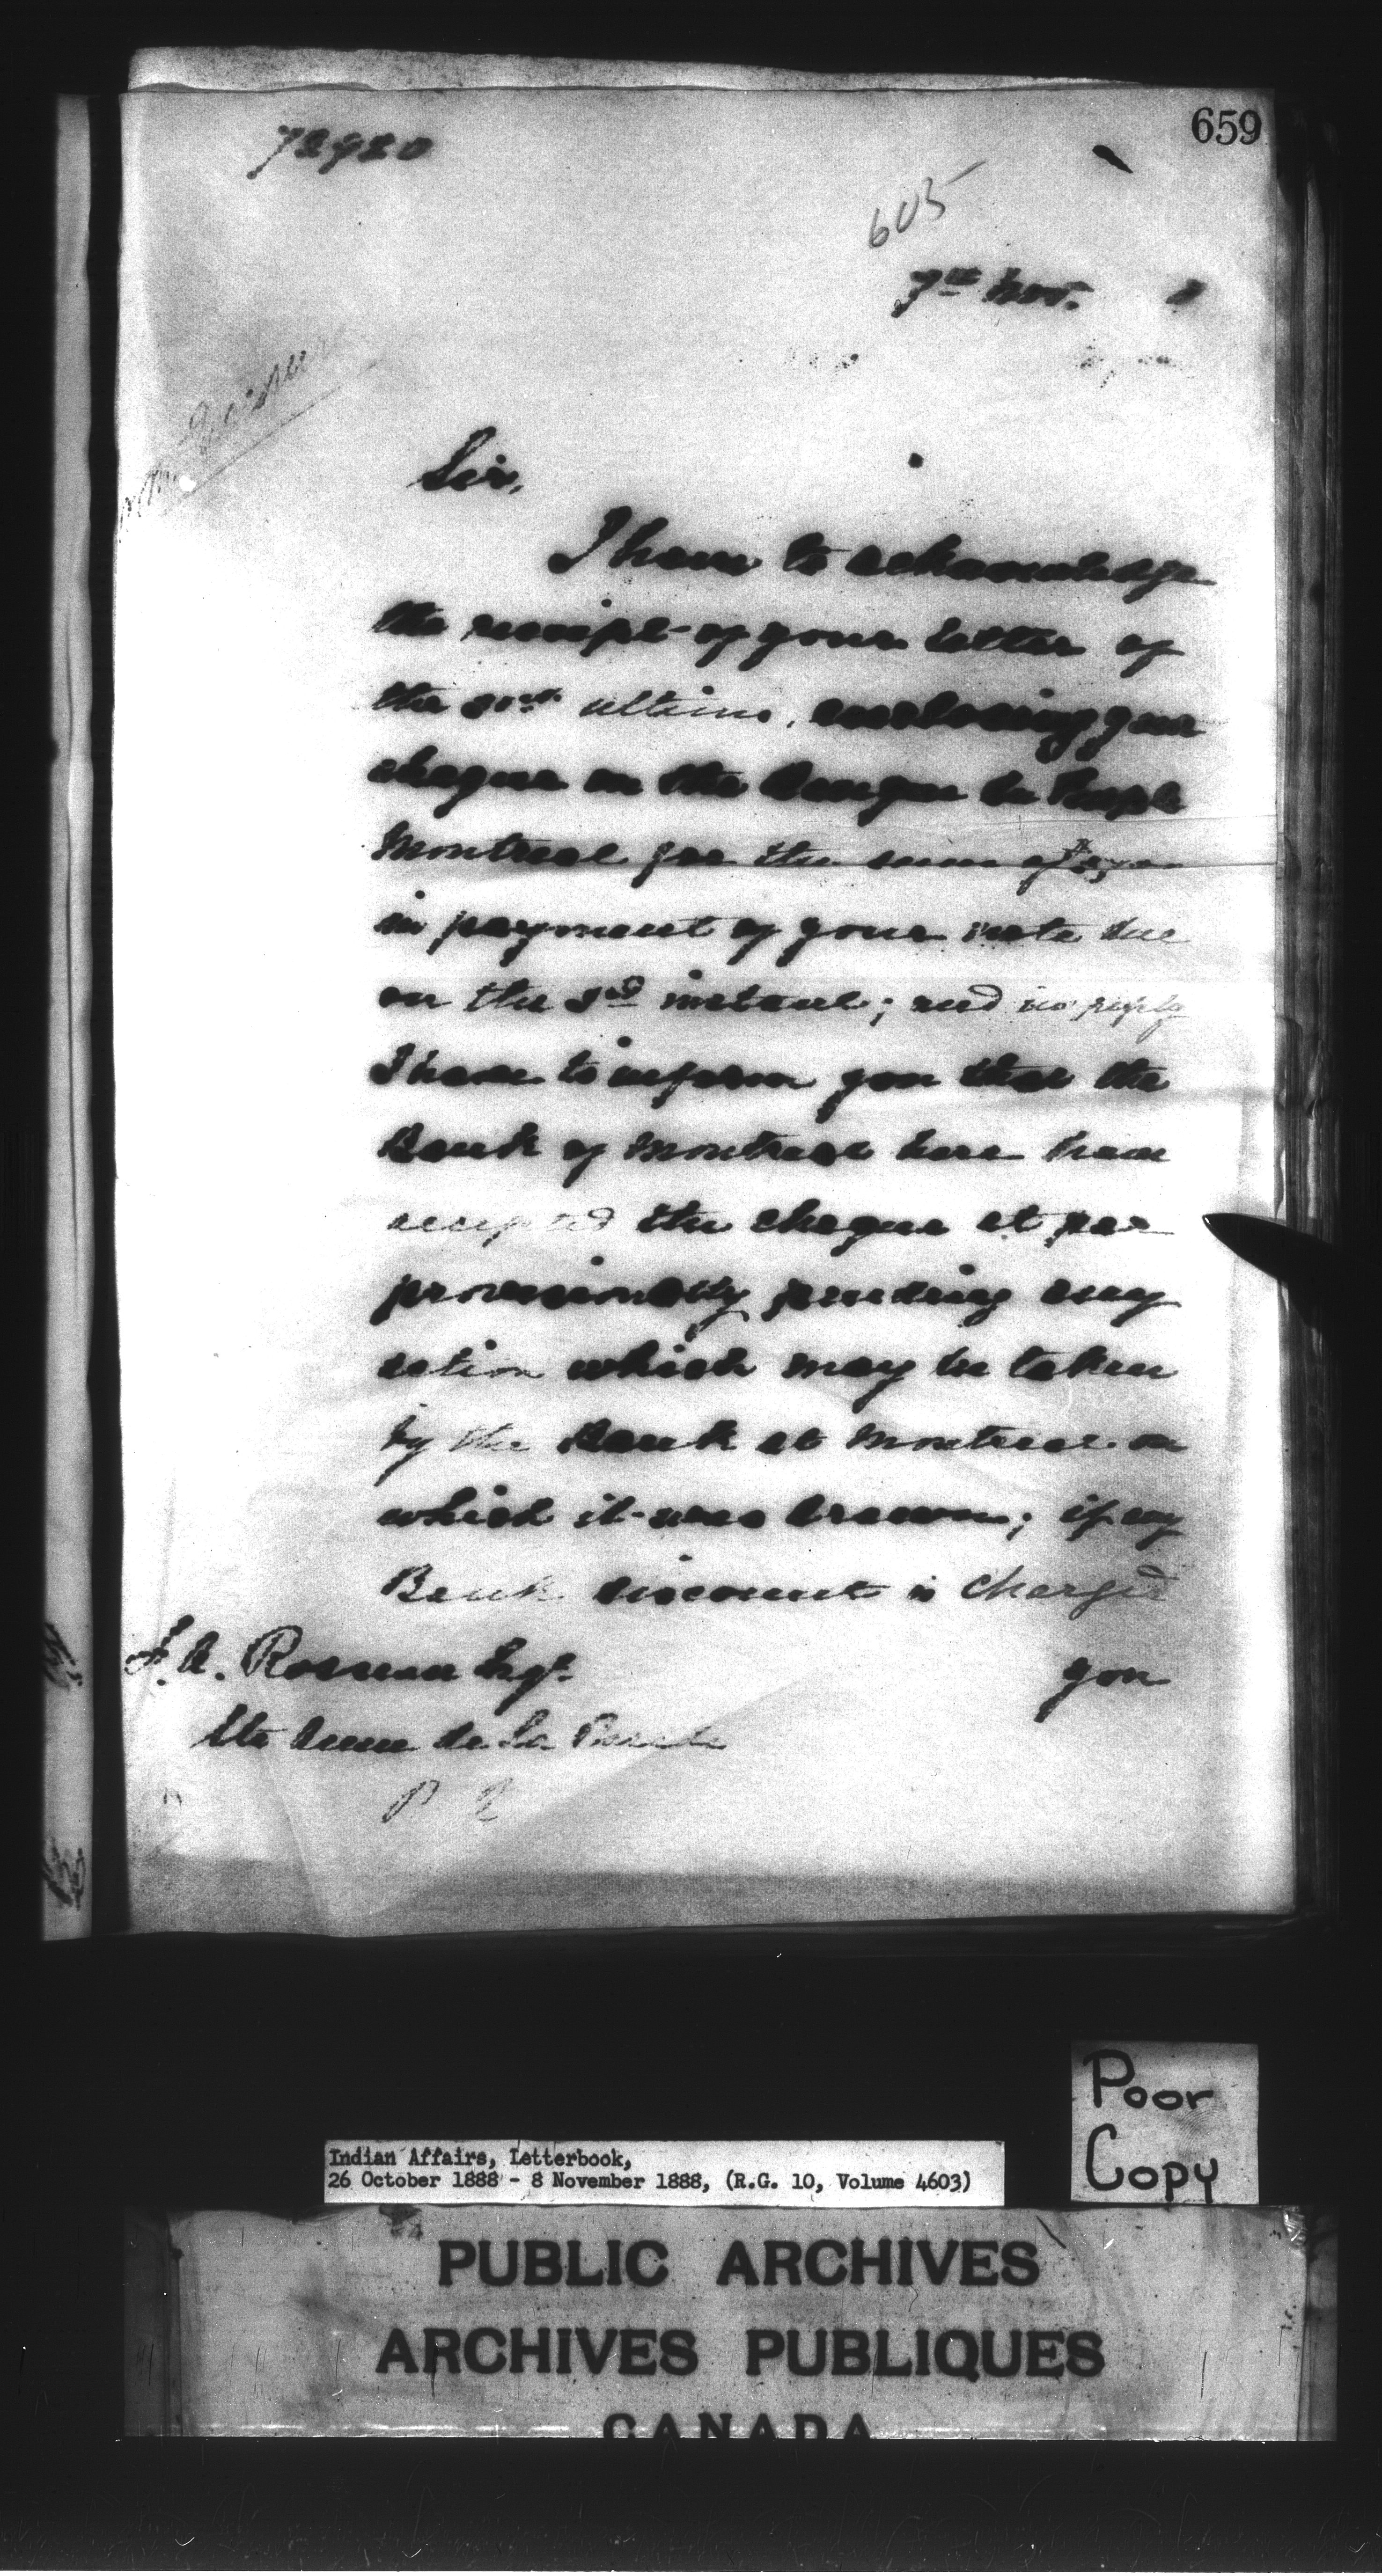 659
72920
605
7th Nov. 8
Sir,
I have to acknowledge
the receipt of your letter of
the 31st ultimo, enclosing your
cheque on the Banque du Peuple
Montreal for the sum of
in payment of your note due
on the 3rd instant; and in reply
I have to inform you that the
Bank of Montreal here have
accepted the cheque at par
provisionally pending any
action which may be taken
by the Bank at Montreal on
which it was drawn; if any
Bank discount is charged
you
A. Esqr.
Ste Anne de La
P Q
Poor
Copy
Indian Affairs, Letterbook,
26 October 1888 - 8 November 1888, (R.G. 10, Volume 4603)
PUBLIC ARCHIVES
ARCHIVES PUBLIQUES
CANADA